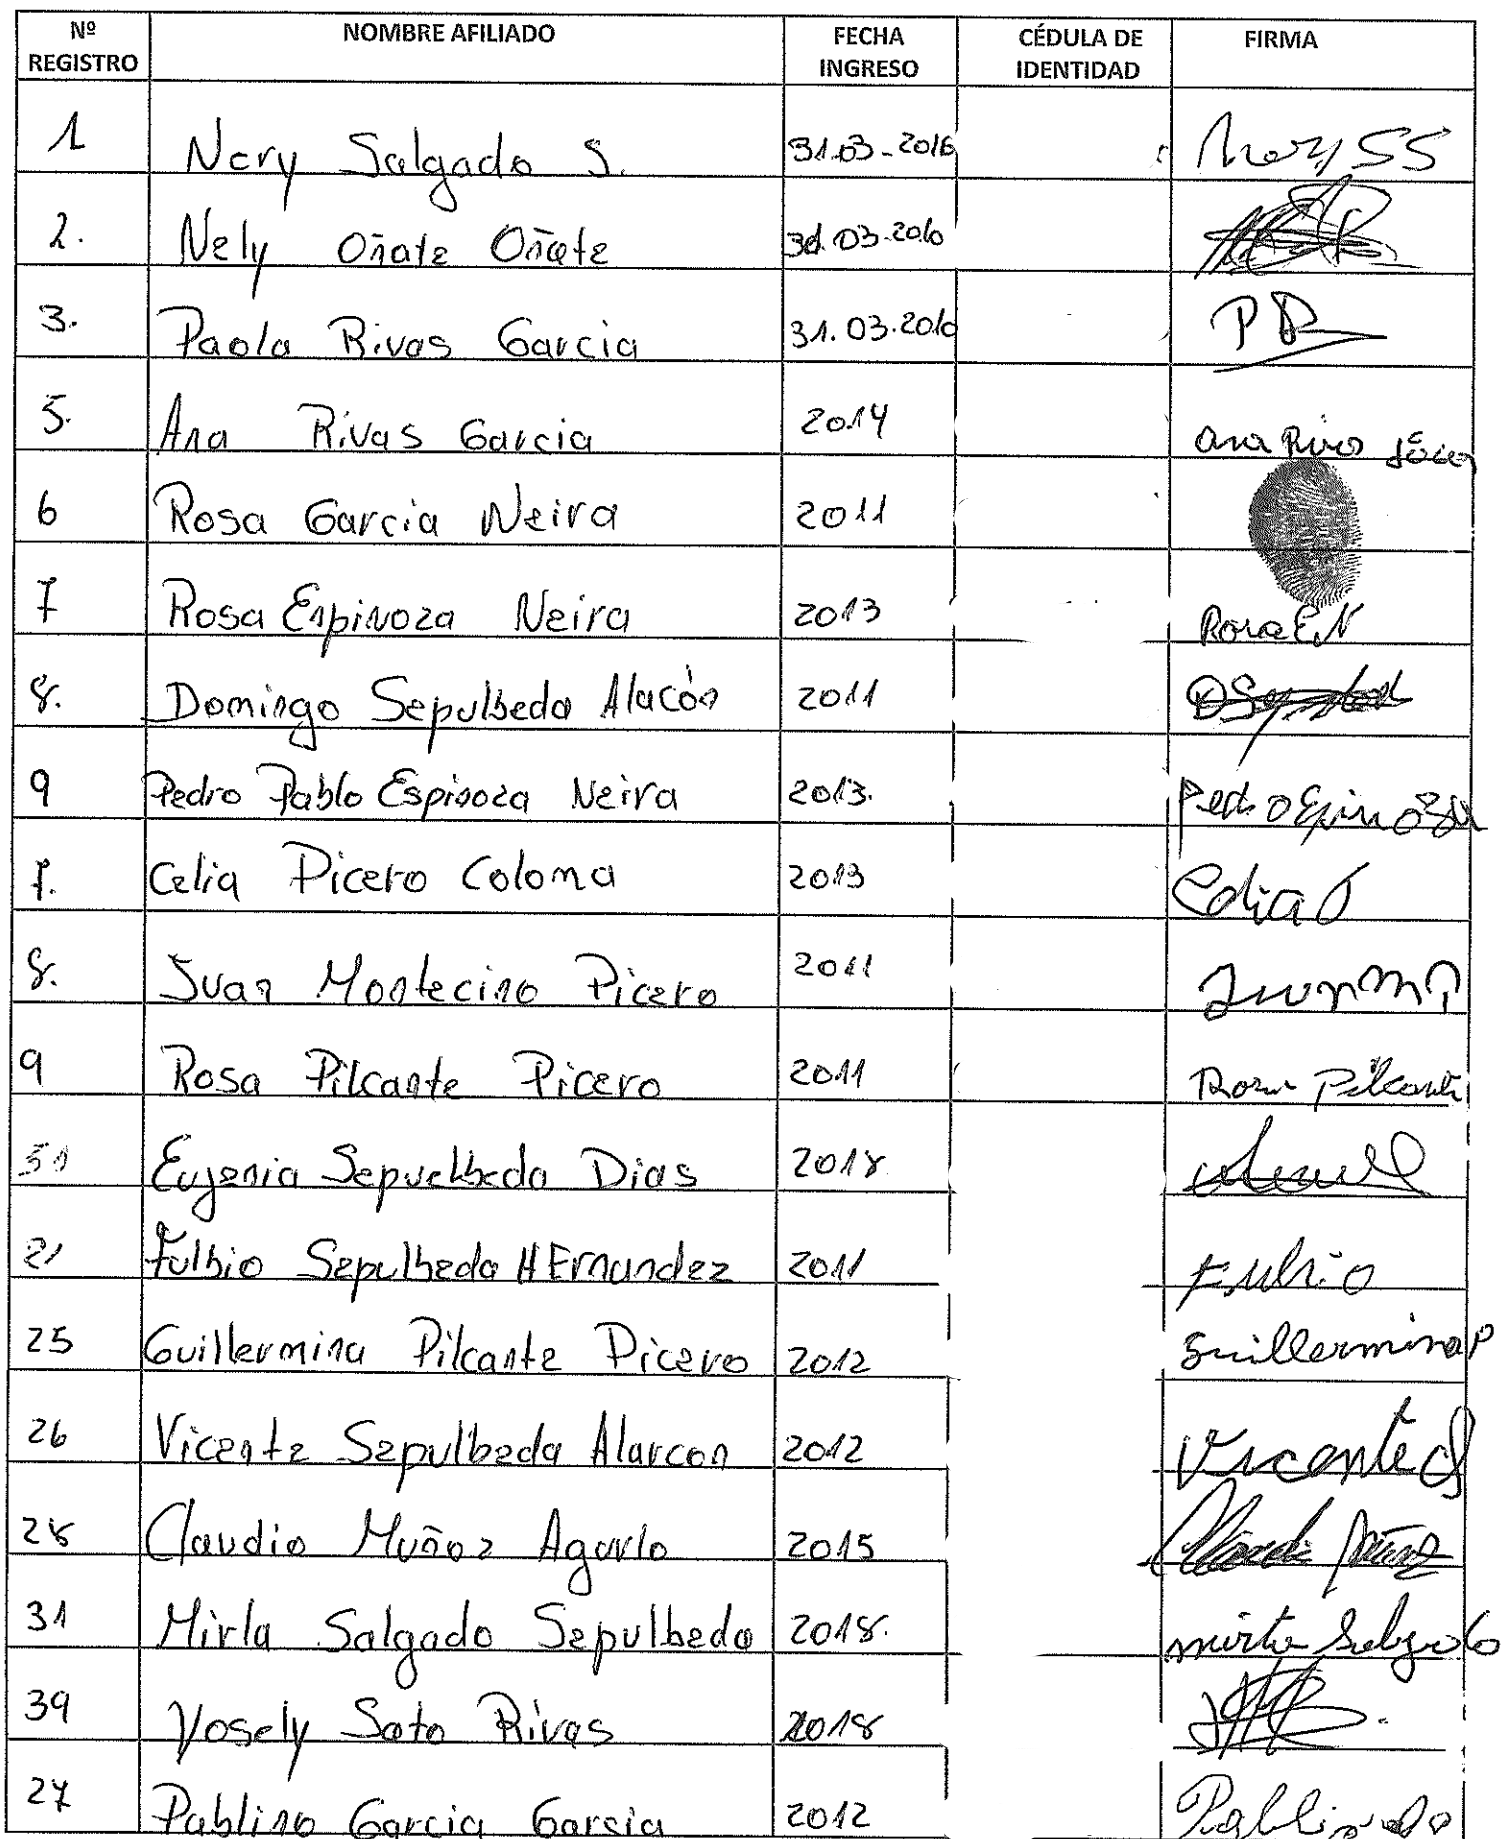 Nº REGISTRO NOMBRE AFILIADO FECHA INGRESO CÉDULA DE IDENTIDAD FIRMA
1 Nery Salgado S. 31.03-2016 Nery SS
2. Nely Oñate Oñate 31.03.2010
3. Paola Rivas Garcia 31.03.2010 PR
5. Ana Rivas Garcia 2014 Ana Rivas
6 Rosa Garcia Neira 2011
7 Rosa Espinoza Neira 2013 Rosa E.N
8. Domingo Sepulbeda Alacón 2011
9 Pedro Pablo Espinoza Neira 2013. Pedro Espinoza
7. Celia Picero Coloma 2013 Celia
8. Juan Montecino Picero 2011 Juan M P
9 Rosa Pilcante Picero 2011 Rosa Pilcante
31 Eugenia Sepuelbeda Dias 2018
21 Fulbio Sepulbeda HErnandez 2011 Fulbio
25 Guillermina Pilcante Picero 2012 Guillermina P
26 Vicente Sepulbeda Alarcon 2012 Vicente S
28 Claudio Muñoz Agurlo 2015 Claudio Muñoz
31 Mirla Salgado Sepulbeda 2018. mirta Salgado
39 Yosely Soto Rivas 2018
27 Pablino Garcia Garcia 2012 Pablino